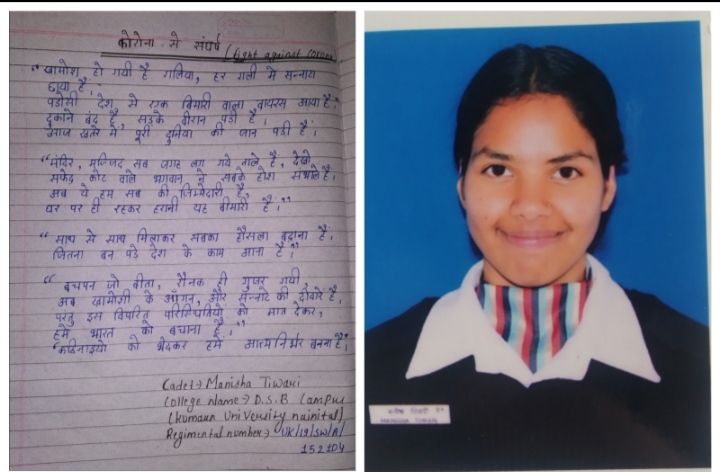 कोरोना से संघर्ष (fight against corona)
“खामोश हो गयी है गलिया, हर गली मे सन्नाटा
छाया है,
पडोसी देश से एक बिमारी वाला वायरस आया है,
दुकाने बंद है, सड़के वीरान पडी है।
आज खतरे मे पूरी दुनिया की जान पडी है।
“मंदिर, मस्जिद सब जगह लग गये ताले है, देखो
सफेद कोट वाले भगवान ने सबके होश संभाले है।
अब ये हम सब की जिम्मेदारी है,
घर पर ही रहकर हरानी यह बीमारी है।”
“साथ से साथ मिलाकर सबका हौसला बढ़ाना है,
जितना बन पडे देश के काम आना है।”
“बचपन जो बीता, रौनक ही गुजर गयी,
अब खामोशी के आँगन, और सन्नाटे की दीवारें है,
परंतु इस विपरित परिस्थितियो को मात देकर,
हमे भारत को बचाना है।”
“कठिनाइयो को भेदकर हमे आत्मनिर्भर बनना है।
Cadet → Manisha Tiwari
College Name → D.S.B Campus
(Kumaun University nainital)
Regimental number → UK/19/SW/A/
152104
MANISHA TIWARI